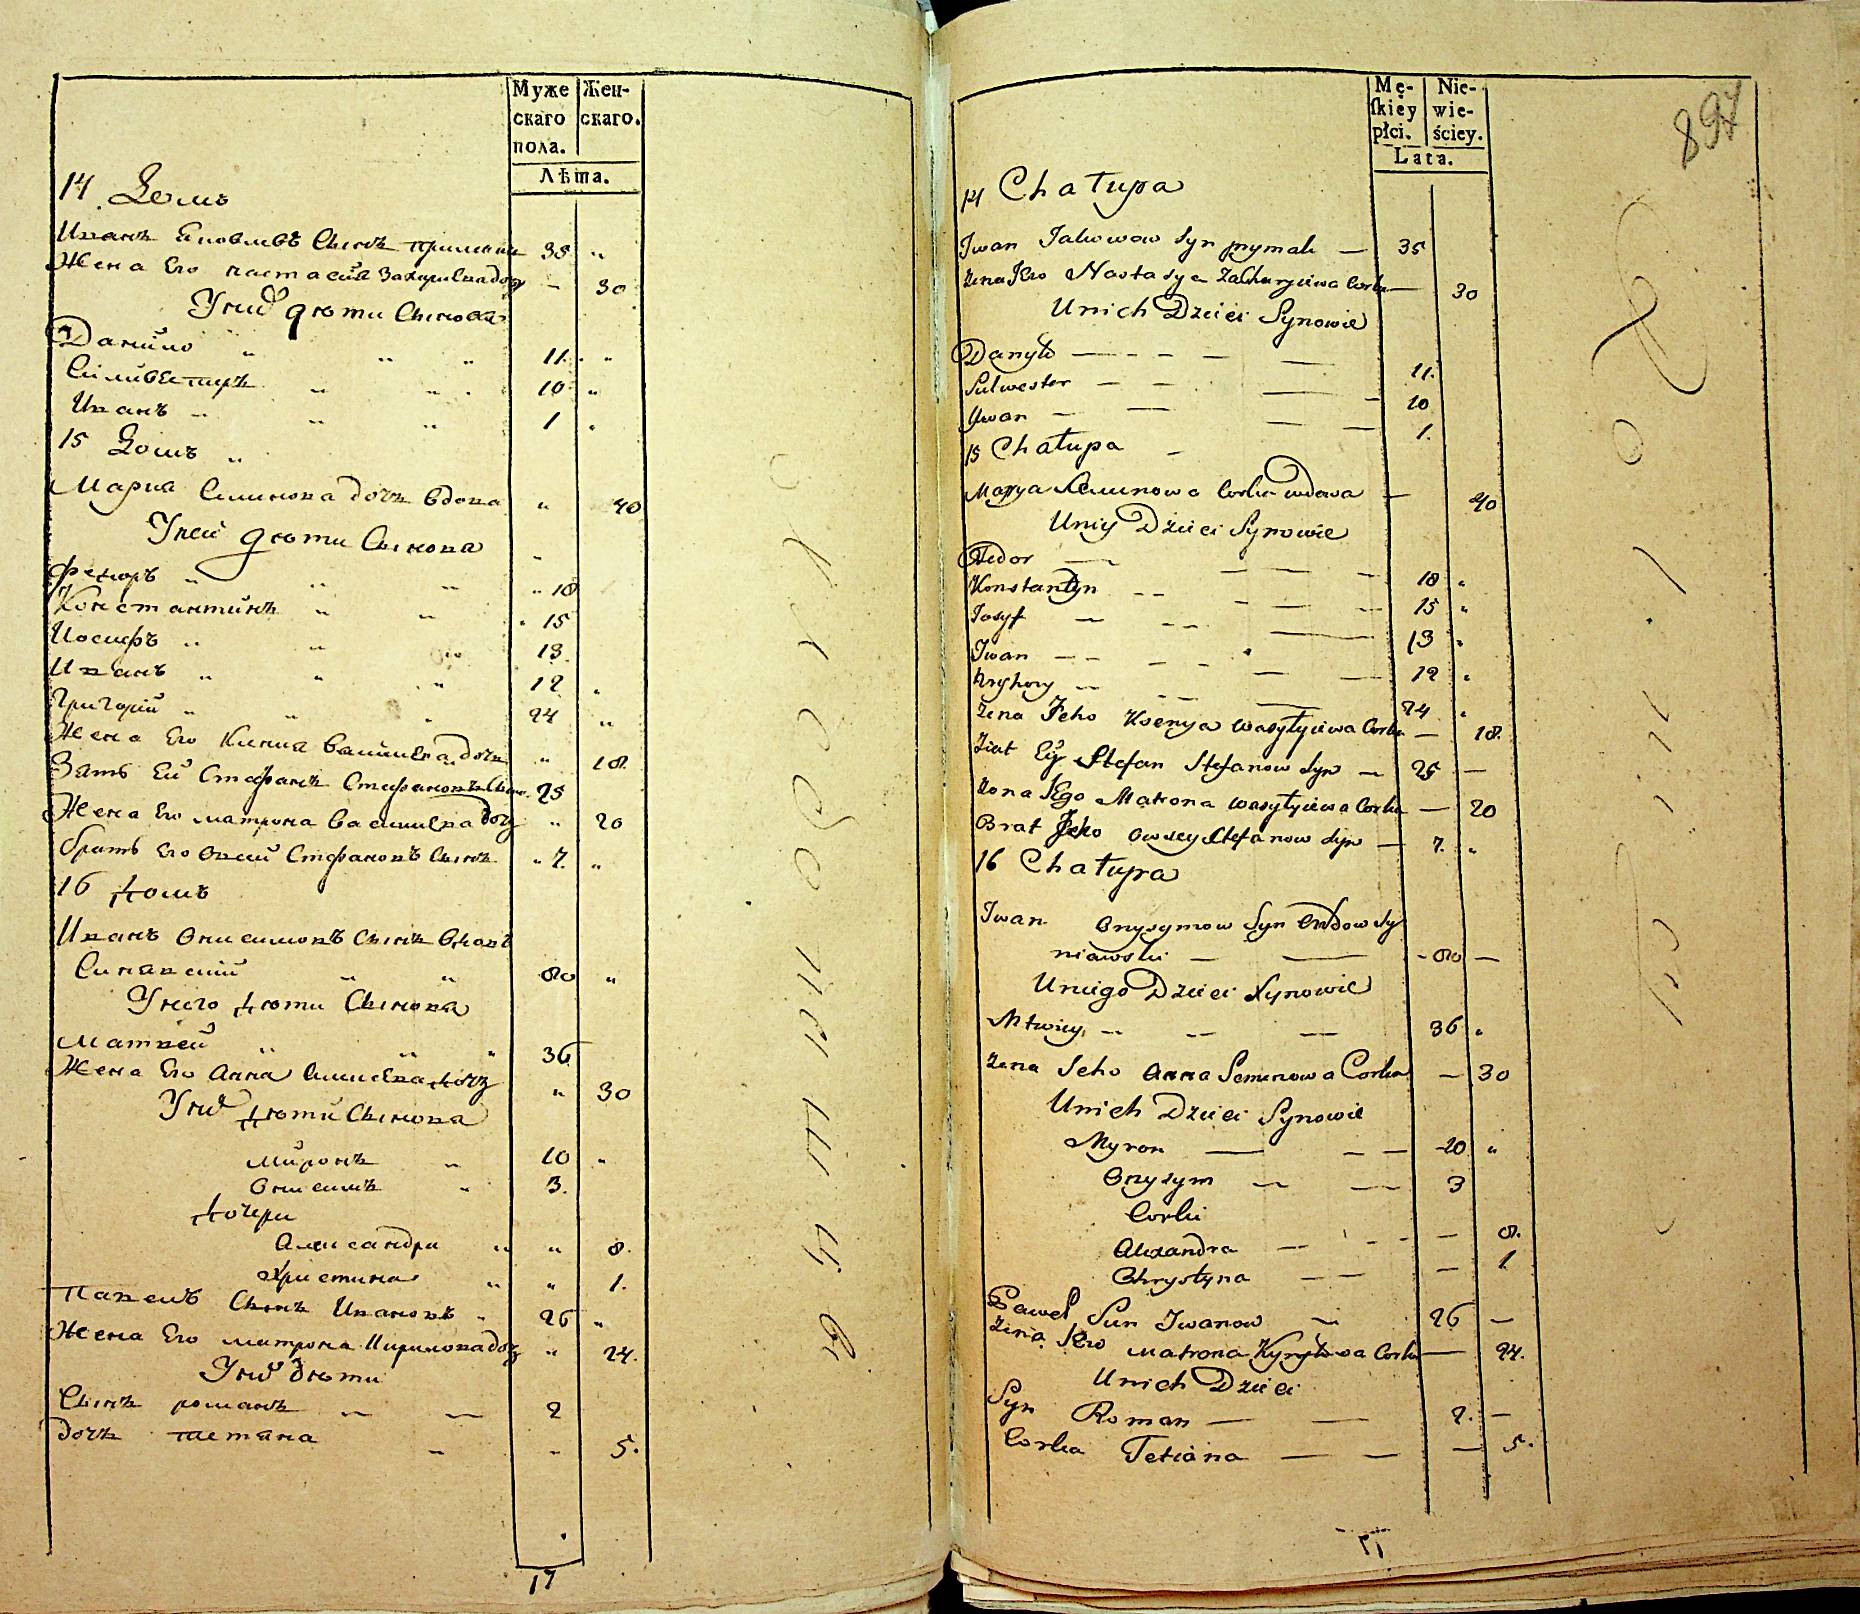 Муже Жен-
скаго скаго.
пола.
Лѣта.
14 Домъ
Иванъ Яковлевъ Сынъ 35 „
Жена Его настасия Захариевна доч – 30
Уних дѣти Сынова
Данило „ „ „ 11. „
Силивестръ „ „ 10 „
Иванъ „ „ „ 1 „
15 Домъ „
Мария Симинова дочъ вдова „ 40
Уней дѣти Сынова „
Федоръ „ „ „ „ 18
Константинъ „ „ „ 15
Иосифъ „ „ „ 13.
Иванъ „ „ „ 12 „
Григорий „ „ „ 24 „
Жена Его Ксения васильевна дочъ „ 18.
Зять Ей Стефанъ Стефановъ Сынъ. 25
Жена Его матрона васильевна доч „ 20
братъ Его Овсий Стефановъ Сынъ „ 7. „
16 домъ
Иванъ Онисимовъ Сынъ вдовъ
Синявский „ „ 80 „
Унего дѣти Сынова
Матвей „ „ „ 36
Жена Его Анна Симиовна дочъ „ 30
Уних дѣти Сынова
Миронъ „ 10 „
Онисимъ „ 3.
дочери
Александра „ „ 8.
Христина „ „ 1.
Павелъ Сынъ Ивановъ „ 26 „
Жена Его матрона Кирилова доч „ 24.
Уних дѣти
Сынъ романъ — — 2
дочъ тетяна „ „ 5.
17
Mę- Nie-
ſkiéy wie-
płci. ściey.
Lata.
897
14 Chałupa
Iwan Jakowow Syn prymak — 35
Zena Jeho Nastasya Zacharyiewa Corka — 30
Unich Dzieci Synowie
Danyło — – – – — 11.
Sulwester – – — – 10
Ywan – — — — 1.
15 Chałupa –
Marya Semenowa Corka wdowa — 40
Uniy Dzieci Synowie
Fedor — — — – 18 „
Konstantyn – – – — – 15 „
Josyf — – – — 13 „
Iwan — – – – — — 12 „
Hryhory – – – — 24 „
Zena Jeho Ksenya Wasyłyiewa Corka — 18.
Ziat Eÿ Stefan Stefanow Syn — 25 —
Zona Jego Matrona Wasyłyiewa Corka — 20
Brat Jeho Owsey Stefanow Syn — 7. „
16 Chałupa
Iwan Onysymow Syn Wdow Sy
niawski — — – 80 —
Uniego Dzieci Synowie
Mtwiey, – – — 36 „
Zena Jeho Anna Semenowa Corka — 30
Unich Dzieci Synowie
Myron — – – 10 „
Onysym – — 3
Corki
Alexandra — – – – — 8.
Chrystyna – — — 1
Paweł Sun Iwanow — 26 —
Zena Jeho Matrona Kyryłowa Corka — 24.
Unich Dzieci
Syn Roman — — 2. —
Corka Tetiana — — — 5.
17